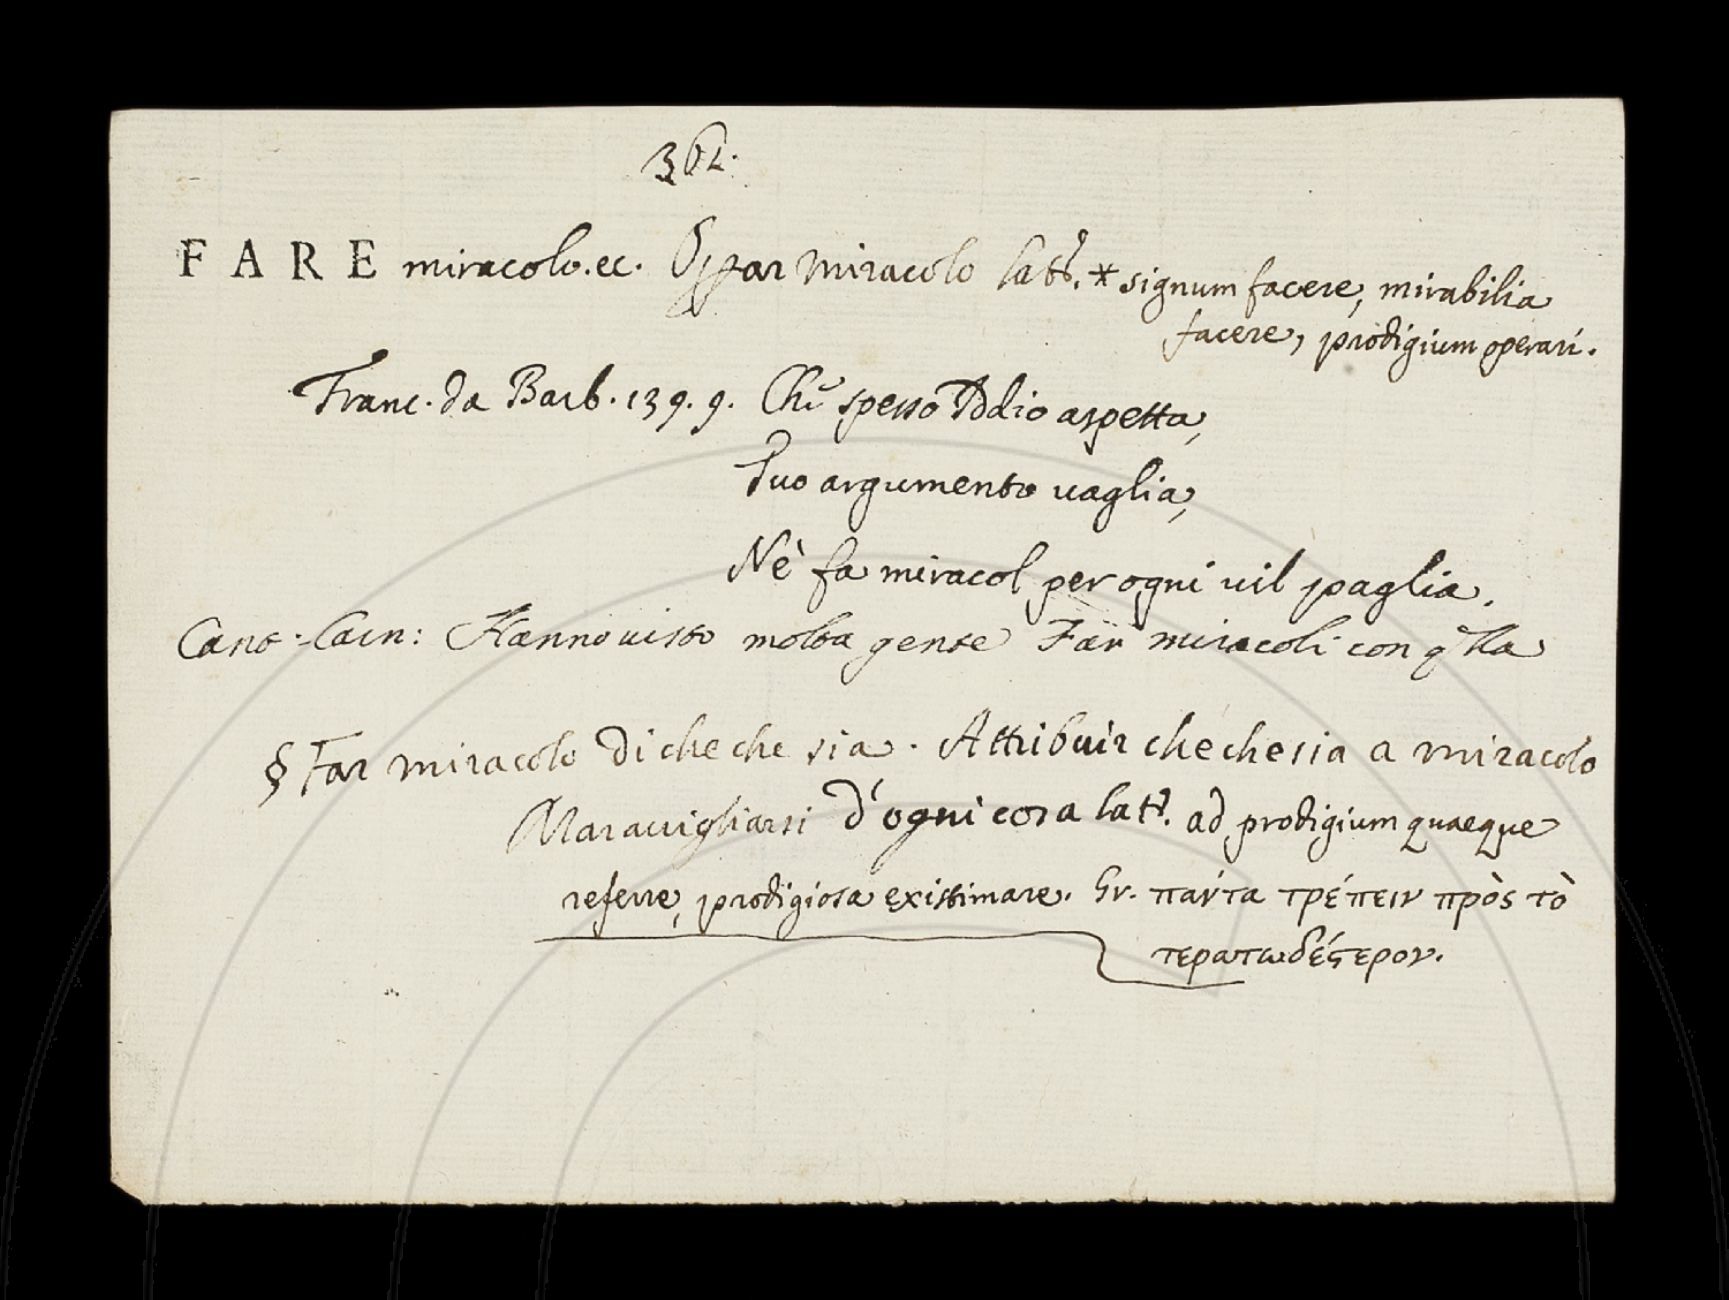 362.
FARE miracolo. ec. Oppar miracolo latt. * signum facere, mirabilia
facere, prodigium operari.
Franc. da Barb. 139. 9. Chi spesso Iddio aspetta,
Suo argumento vaglia,
Nè fa miracol per ogni vil paglia.
Cant. Carn: Hanno visto molta gente Far miracoli con qlla
§ Far miracolo di che che sia. Attribuir che che sia a miracolo
Maravigliarsi d'ogni cosa latt. ad prodigium quaeque
referre, prodigiosa existimare. Gr. πάντα τρέπειν πρὸς τὸ
τερατωδέςερον.